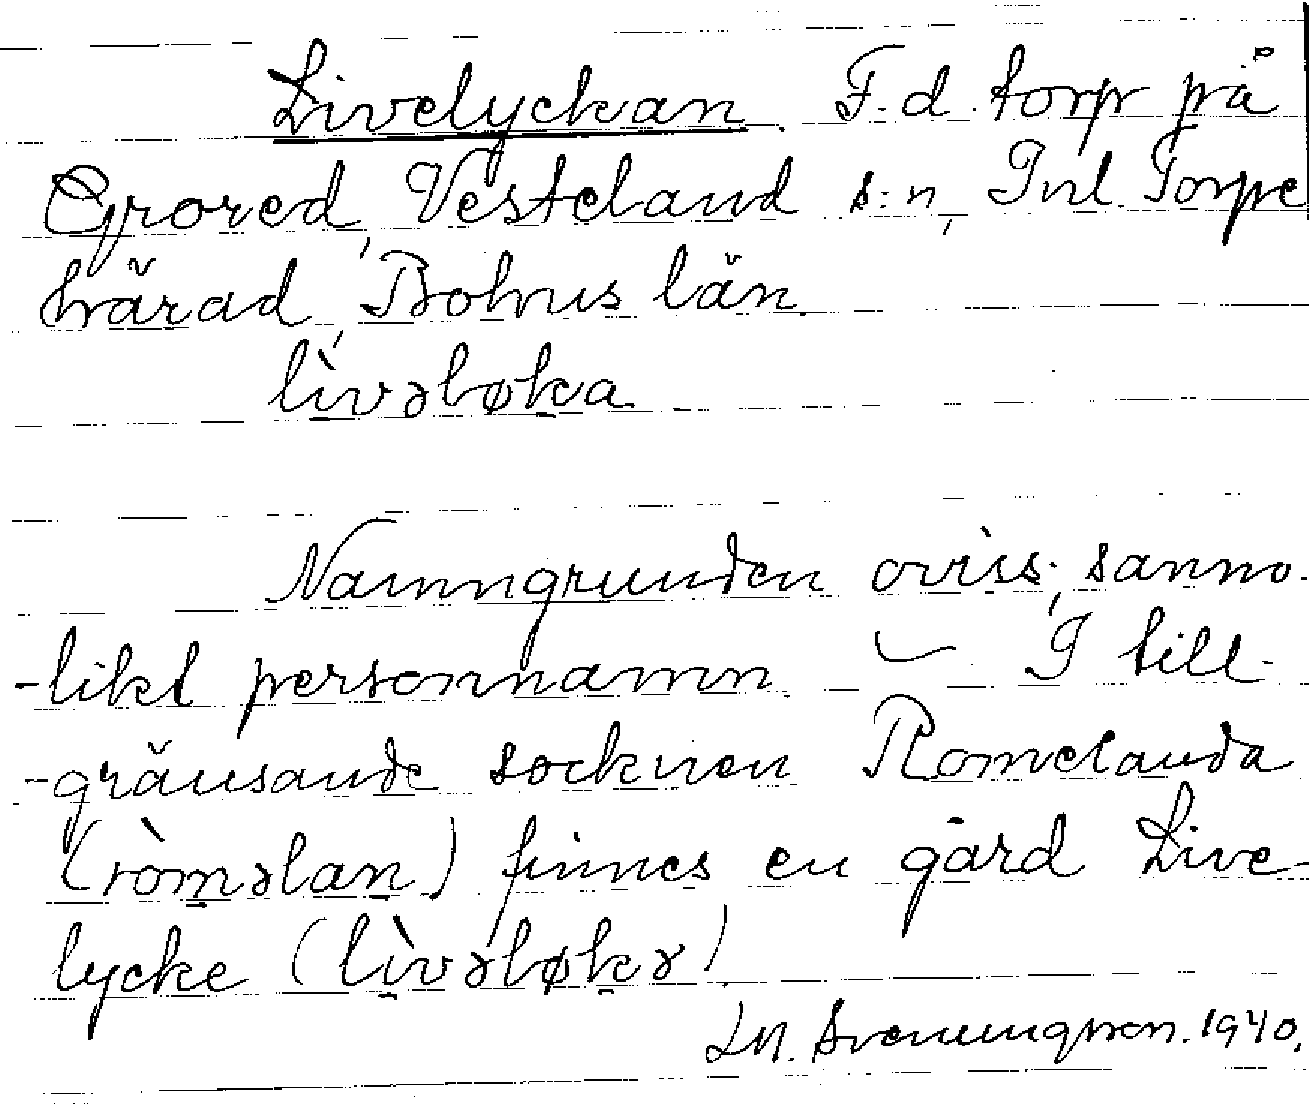 Livelyckan F. d. torp på
Grored, Vesteland s:n, Inl. Torpe
härad, Bohus län.
lìvəløka.
Namngrunden oviss; sanno-
-likt personnamn. — I till-
-gränsande socknen Romelanda
(ròməlan) finnes en gård Live-
lycke (lìvəløkə).
Svenungsson. 1940.